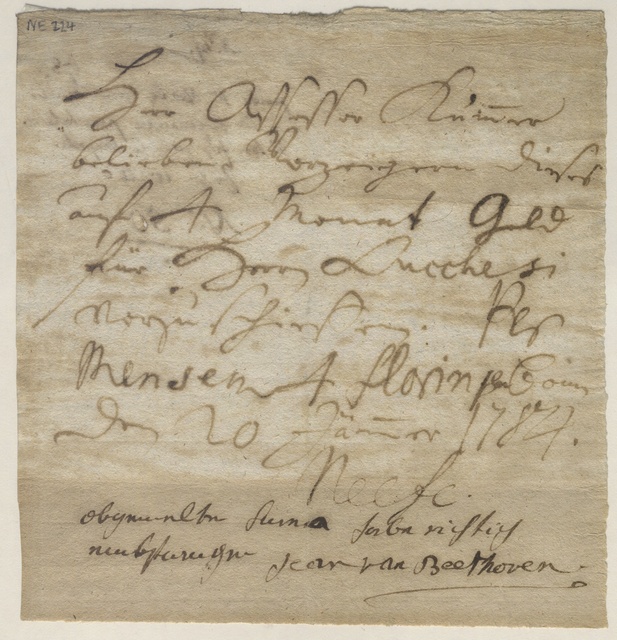 NE 224
Herr Assessor Kümmer
belieben Vorzeigern dieses
auf 4 Monat Geld
für Herrn Lucchesi
vorzuschießen. Per
Mensem 4 florin
den 20 Jänner 1784.
Neefe.
obgemelte Suma habe richtig
Jean van Beethoven